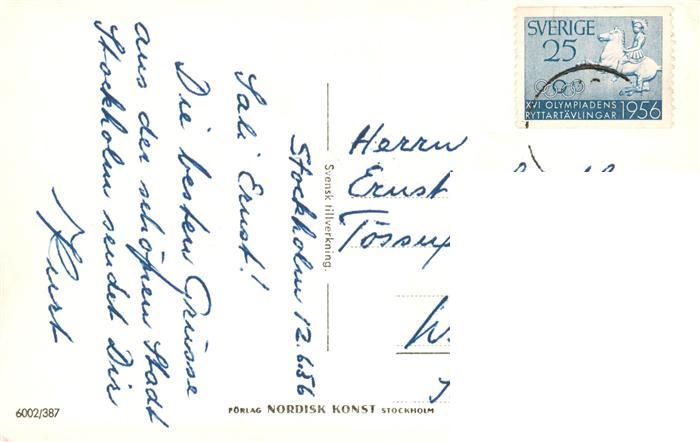 Stockholm 12.6.56
Sali Ernst!
Die besten Grüsse
aus der schönen Stadt
Stockholm sendet Dir
Kurt
Svensk tillverkning.
SVERIGE
25
XVI OLYMPIADENS
RYTTARTÄVLINGAR 1956
Herrn
Ernst
6002/387
FÖRLAG NORDISK KONST STOCKHOLM